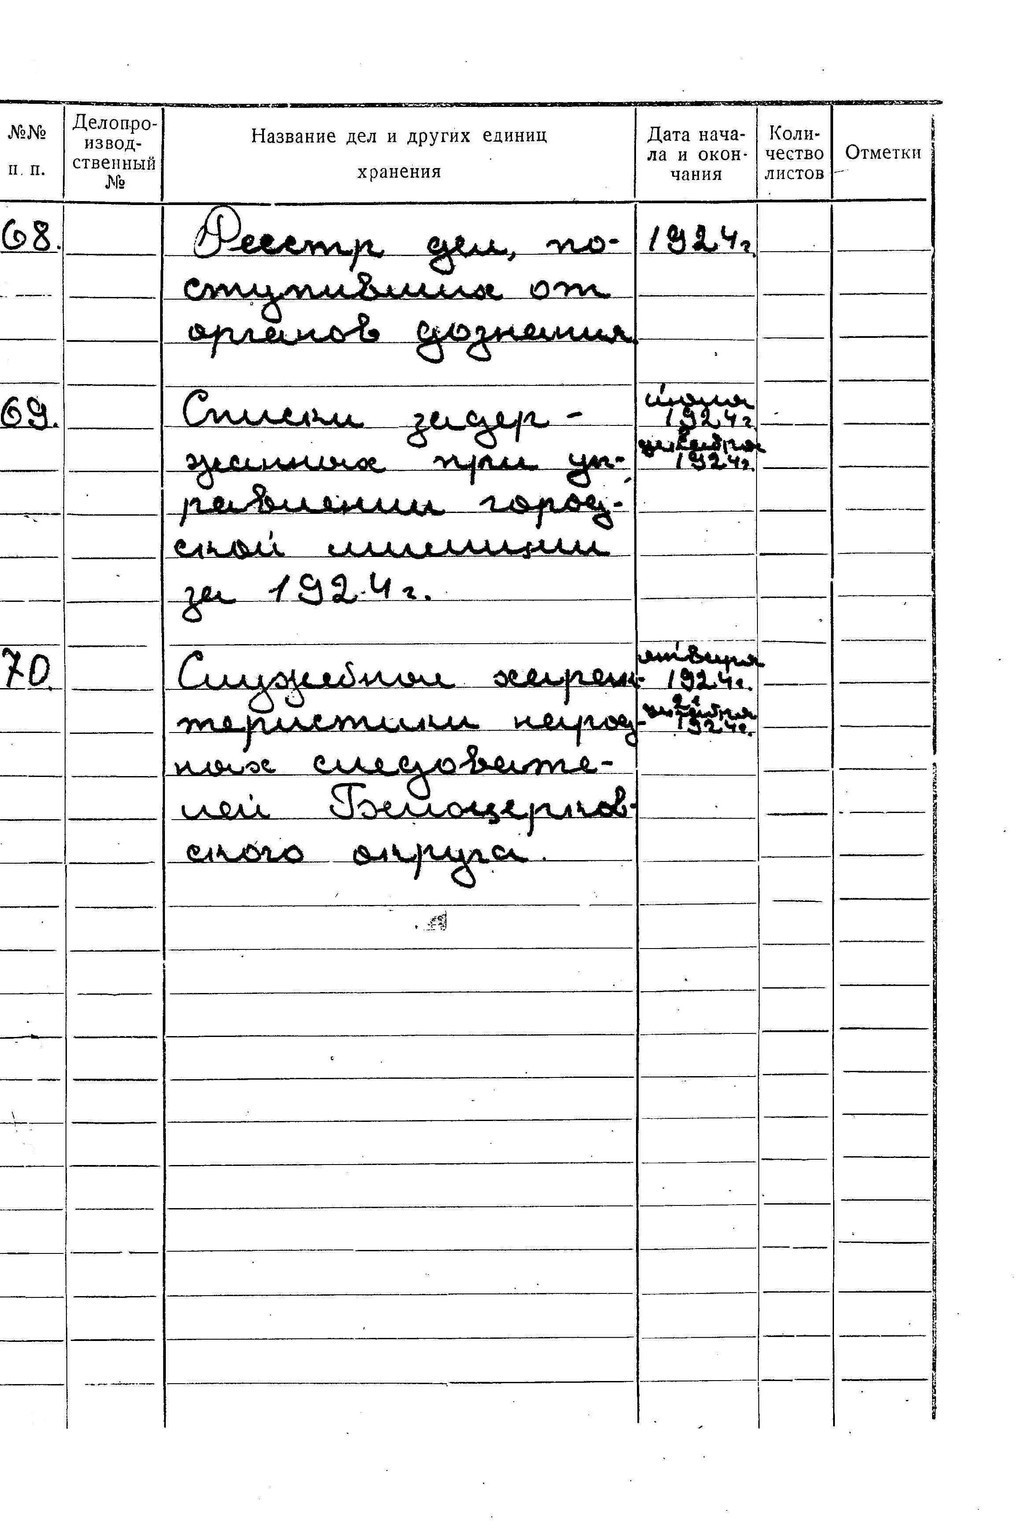 №№ п. п.
Делопро-
извод-
ственный
№
Название дел и других единиц
хранения
Дата нача-
ла и окон-
чания
Коли-
чество
листов
Отметки
68. Реестр дел, по- 1924г.
ступивших от
органов дознания
69. Списки задер-
жанных при уп-
равлении город-
ской милиции
за 1924г.
июня
1924г.
декабря
1924г.
70. Служебные харак-
теристики народ-
ных следовате-
лей Белоцерков-
ского округа.
января
1924г.
декабря
1924г.